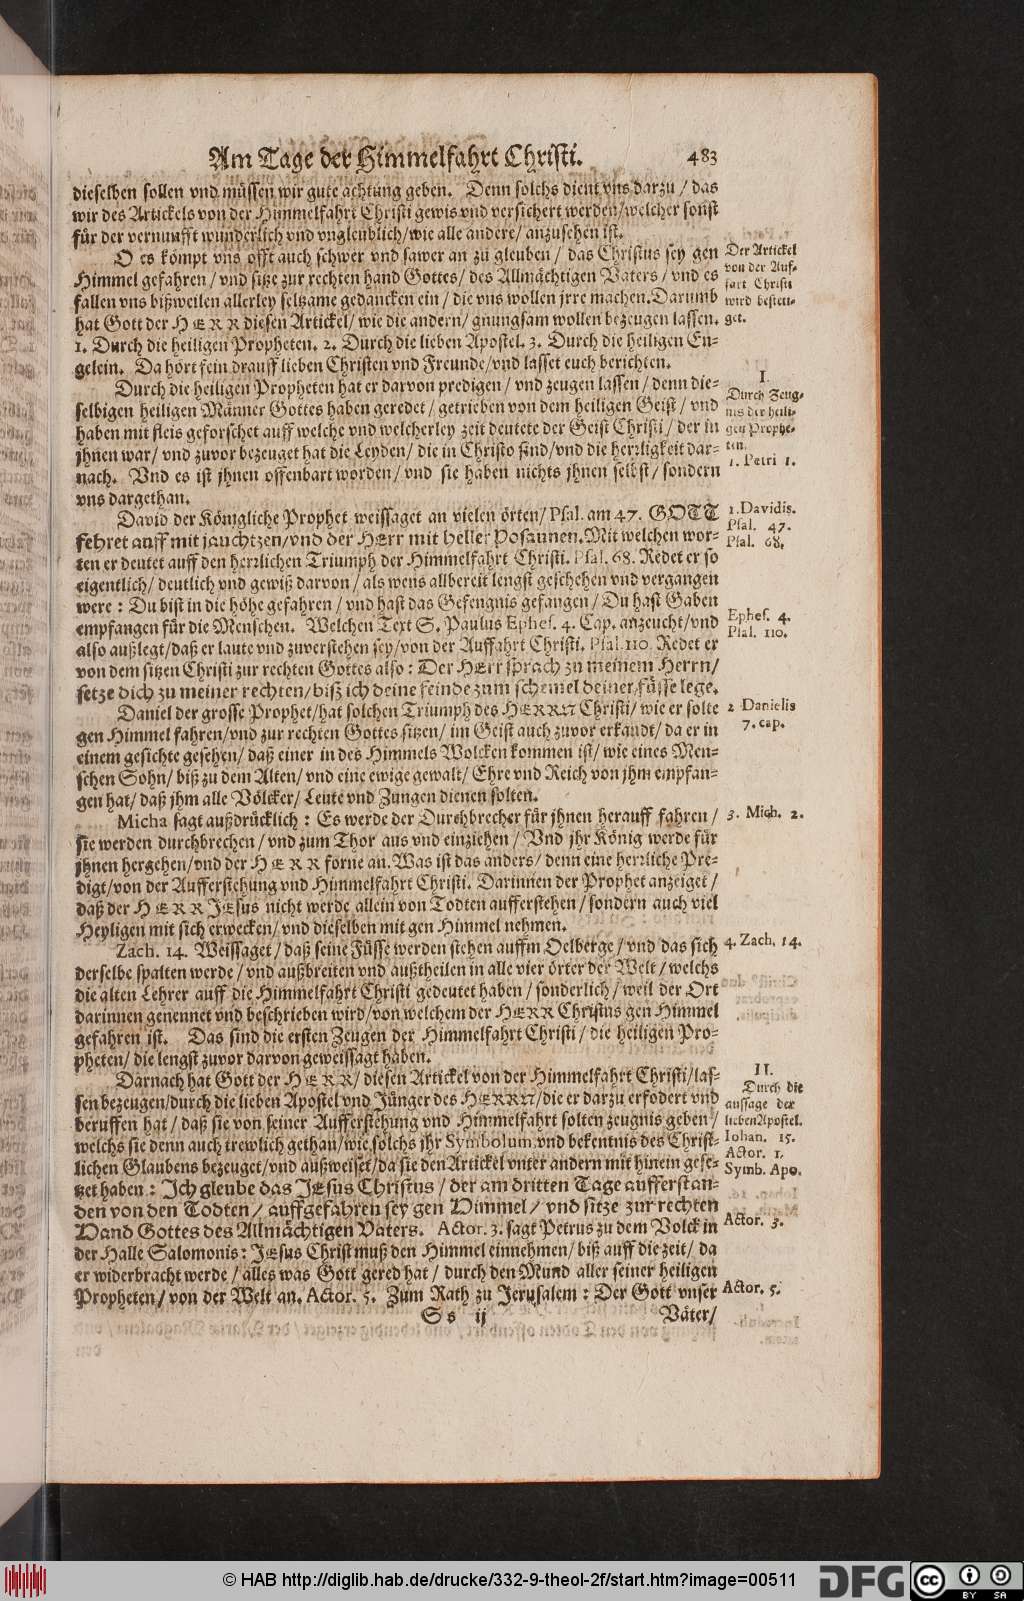 Am Tage der Himmelfahrt Christi. 483
dieselben sollen vnd müssen wir gute achtung geben. Denn solchs dient vns darzu / das
wir des Artickels von der Himmelfahrt Christi gewis vnd versichert werden/welcher sonst
für der vernunfft wunderlich vnd vngleublich/wie alle andere/ anzusehen ist.
O es kömpt vns offt auch schwer vnd sawer an zu gleuben / das Christus sey gen
Himmel gefahren / vnd sitze zur rechten hand Gottes/ des Allmächtigen Vaters / vnd es
fallen vns bißweilen allerley seltzame gedancken ein / die vns wollen jrre machen. Darumb
hat Gott der HERR diesen Artickel/ wie die andern/ gnungsam wollen bezeugen lassen.
1. Durch die heiligen Propheten. 2. Durch die lieben Apostel. 3. Durch die heiligen En-
gelein. Da hört fein drauff lieben Christen vnd Freunde/vnd lasset euch berichten.
Der Artickel
von der Auf-
fart Christi
wird besteti-
get.
Durch die heiligen Propheten hat er darvon predigen / vnd zeugen lassen / denn die-
selbigen heiligen Männer Gottes haben geredet / getrieben von dem heiligen Geist / vnd
haben mit fleis geforschet auff welche vnd welcherley zeit deutete der Geist Christi / der in
jhnen war/ vnd zuvor bezeuget hat die Leyden/ die in Christo sind/vnd die herrligkeit dar-
nach. Vnd es ist jhnen offenbart worden/ vnd sie haben nichts jhnen selbst/ sondern
vns dargethan.
I.
Durch Zeug-
nis der heili-
gen Prophe-
ten.
1. Petri 1.
David der Königliche Prophet weissaget an vielen örten/ Psal. am 47. GOTT
fehret auff mit jauchtzen/vnd der HErr mit heller Posaunen. Mit welchen wor-
ten er deutet auff den herrlichen Triumph der Himmelfahrt Christi. Psal. 68. Redet er so
eigentlich/ deutlich vnd gewiß darvon / als wens allbereit lengst geschehen vnd vergangen
were : Du bist in die höhe gefahren / vnd hast das Gefengnis gefangen / Du hast Gaben
empfangen für die Menschen. Welchen Text S. Paulus Ephes. 4. Cap. anzeucht/vnd
also außlegt/daß er laute vnd zuverstehen sey/von der Auffahrt Christi. Psal. 110. Redet er
von dem sitzen Christi zur rechten Gottes also : Der HErr sprach zu meinem Herrn/
setze dich zu meiner rechten/biß ich deine feinde zum schemel deiner füsse lege.
1. Davidis.
Psal. 47.
Psal. 68.
Ephes. 4.
Psal. 110.
Daniel der grosse Prophet/hat solchen Triumph des HERRN Christi/ wie er solte
gen Himmel fahren/vnd zur rechten Gottes sitzen/ im Geist auch zuvor erkandt/ da er in
einem gesichte gesehen/ daß einer in des Himmels Wolcken kommen ist/ wie eines Men-
schen Sohn/ biß zu dem Alten/ vnd eine ewige gewalt/ Ehre vnd Reich von jhm empfan-
gen hat/ daß jhm alle Völcker/ Leute vnd Zungen dienen solten.
2 Danielis
7. cap.
Micha sagt außdrücklich : Es werde der Durchbrecher für jhnen herauff fahren /
sie werden durchbrechen / vnd zum Thor aus vnd einziehen / Vnd jhr König werde für
jhnen hergehen/vnd der HERR forne an. Was ist das anders/ denn eine herrliche Pre-
digt/von der Aufferstehung vnd Himmelfahrt Christi. Darinnen der Prophet anzeiget /
daß der HERR JEsus nicht werde allein von Todten aufferstehen / sondern auch viel
Heyligen mit sich erwecken/ vnd dieselben mit gen Himmel nehmen.
3. Mich. 2.
Zach. 14. Weissaget / daß seine Füsse werden stehen auffm Oelberge / vnd das sich
derselbe spalten werde / vnd außbreiten vnd außtheilen in alle vier örter der Welt / welchs
die alten Lehrer auff die Himmelfahrt Christi gedeutet haben / sonderlich / weil der Ort
darinnen genennet vnd beschrieben wird/von welchem der HERR Christus gen Himmel
gefahren ist. Das sind die ersten Zeugen der Himmelfahrt Christi / die heiligen Pro-
pheten/ die lengst zuvor darvon geweissagt haben.
4. Zach. 14.
Darnach hat Gott der HERR/ diesen Artickel von der Himmelfahrt Christi/las-
sen bezeugen/durch die lieben Apostel vnd Jünger des HERRN/die er darzu erfodert vnd
beruffen hat / daß sie von seiner Aufferstehung vnd Himmelfahrt solten zeugnis geben /
welchs sie denn auch trewlich gethan/wie solchs jhr Symbolum vnd bekentnis des Christ-
lichen Glaubens bezeuget/vnd außweiset/da sie den Artickel vnter andern mit hinein gese-
tzet haben : Ich gleube das JEsus Christus / der am dritten Tage aufferstan-
den von den Todten / auffgefahren sey gen Himmel / vnd sitze zur rechten
Hand Gottes des Allmächtigen Vaters. Actor. 3. sagt Petrus zu dem Volck in
der Halle Salomonis : JEsus Christ muß den Himmel einnehmen/ biß auff die zeit / da
er widerbracht werde / alles was Gott gered hat / durch den Mund aller seiner heiligen
Propheten / von der Welt an. Actor. 5. Zum Rath zu Jerusalem : Der Gott vnser
II.
Durch die
aussage der
lieben Apostel.
Iohan. 15.
Actor. 1.
Symb. Apo.
Actor. 3.
Actor. 5.
Ss ij Väter/
© HAB http://diglib.hab.de/drucke/332-9-theol-2f/start.htm?image=00511
DFG
cc BY SA